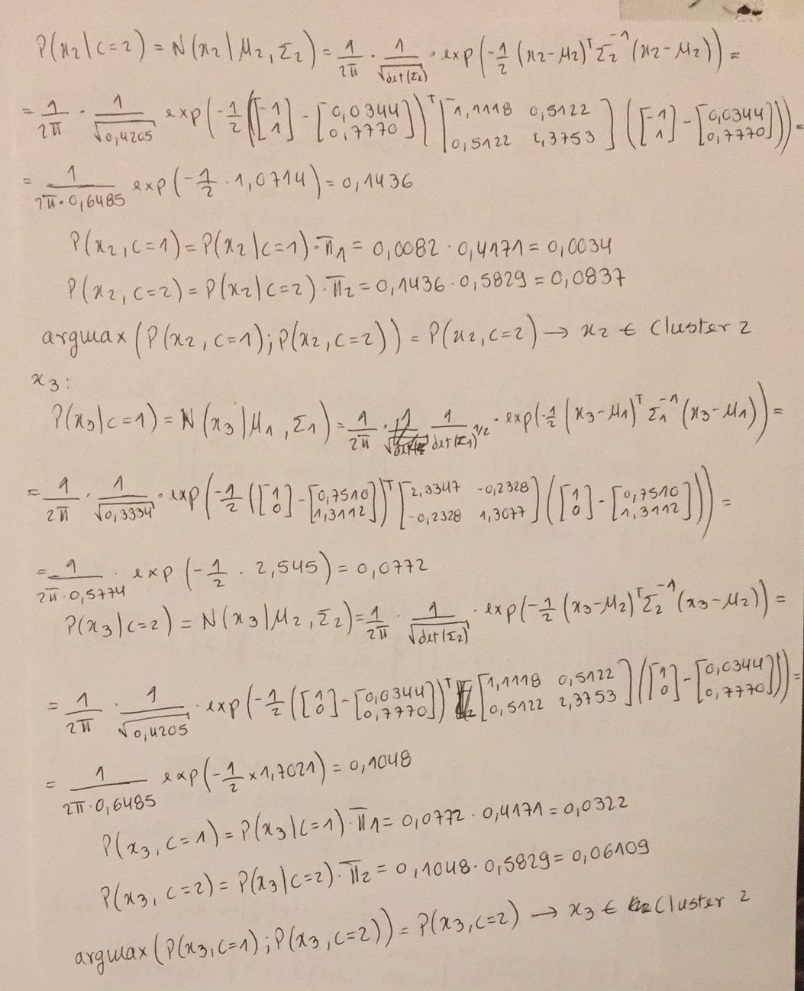 P(x₂|c=2) = N(x₂|μ₂, Σ₂) = 1/2π · 1/√det(Σ₂) · exp(-1/2 (x₂-μ₂)ᵀ Σ₂⁻¹ (x₂-μ₂)) =
= 1/2π · 1/√0,4205 exp(-1/2 ([-1 1] - [0,0344 0,7770])ᵀ [1,1118 0,5122 0,5122 2,3753] ([-1 1] - [0,0344 0,7770])) =
= 1/2π·0,6485 exp(-1/2 · 1,0714) = 0,1436
P(x₂, c=1) = P(x₂|c=1)·π₁ = 0,0082 · 0,4171 = 0,0034
P(x₂, c=2) = P(x₂|c=2)·π₂ = 0,1436 · 0,5829 = 0,0837
argmax (P(x₂, c=1); P(x₂, c=2)) = P(x₂, c=2) → x₂ ∈ Cluster 2
x₃:
P(x₃|c=1) = N(x₃|μ₁, Σ₁) = 1/2π · 1/det(Σ₁)^1/2 · exp(-1/2 (x₃-μ₁)ᵀ Σ₁⁻¹ (x₃-μ₁)) =
= 1/2π · 1/√0,3334 · exp(-1/2 ([1 0] - [0,7510 1,3112])ᵀ [2,3347 -0,2328 -0,2328 1,3077] ([1 0] - [0,7510 1,3112])) =
= 1/2π·0,5774 · exp(-1/2 · 2,545) = 0,0772
P(x₃|c=2) = N(x₃|μ₂, Σ₂) = 1/2π · 1/√det(Σ₂) · exp(-1/2 (x₃-μ₂)ᵀ Σ₂⁻¹ (x₃-μ₂)) =
= 1/2π · 1/√0,4205 · exp(-1/2 ([1 0] - [0,0344 0,7770])ᵀ [1,1118 0,5122 0,5122 2,3753] ([1 0] - [0,0344 0,7770])) =
= 1/2π·0,6485 exp(-1/2 × 1,7021) = 0,1048
P(x₃, c=1) = P(x₃|c=1)·π₁ = 0,0772 · 0,4171 = 0,0322
P(x₃, c=2) = P(x₃|c=2)·π₂ = 0,1048 · 0,5829 = 0,06109
argmax (P(x₃, c=1); P(x₃, c=2)) = P(x₃, c=2) → x₃ ∈ Cluster 2